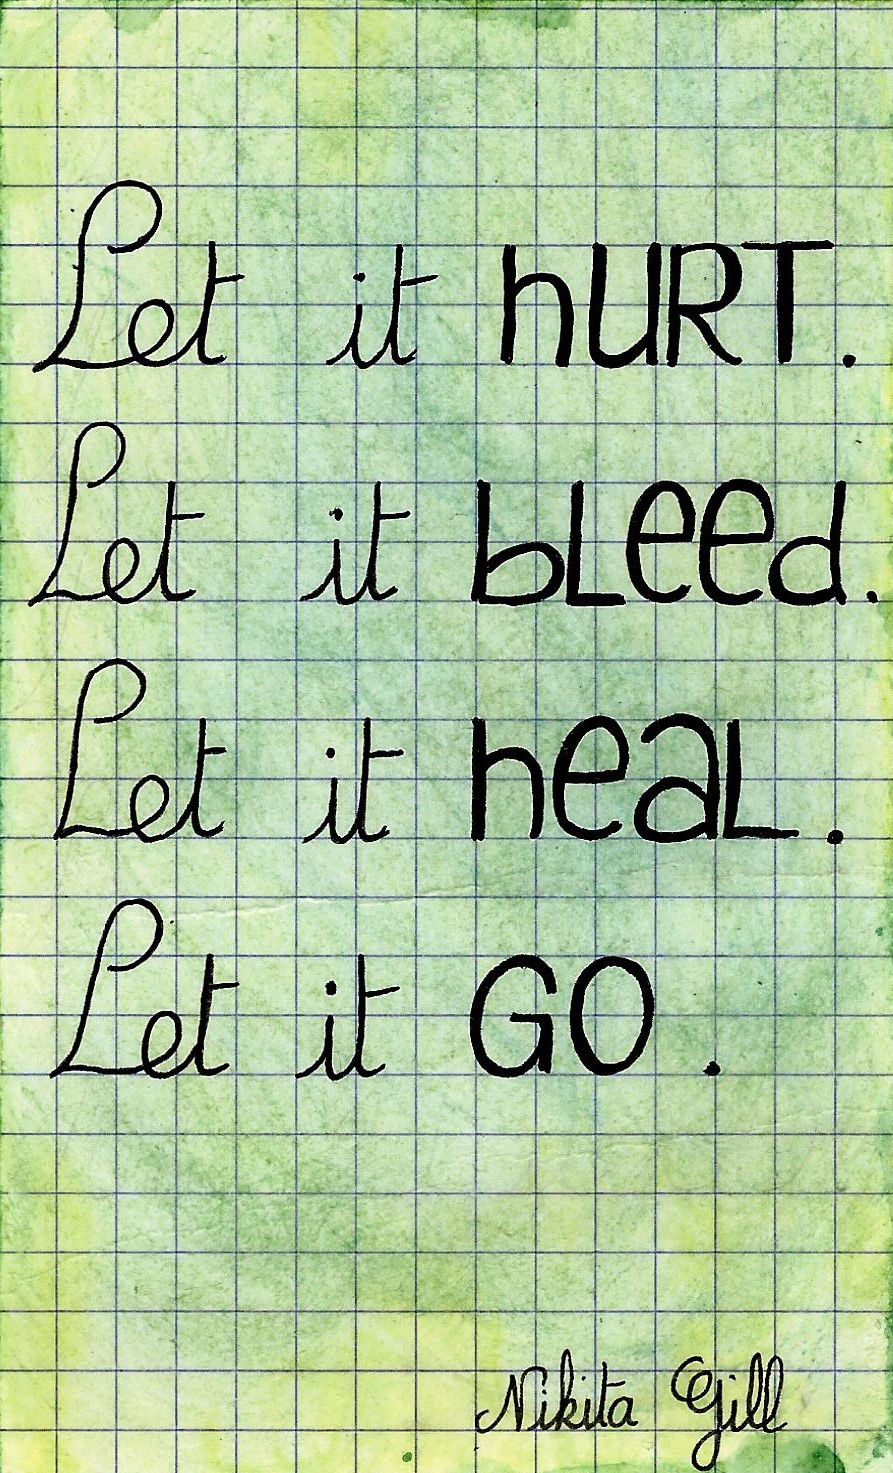 Let it hURT.
Let it bLeed.
Let it heaL.
Let it GO.
Nikita Gill